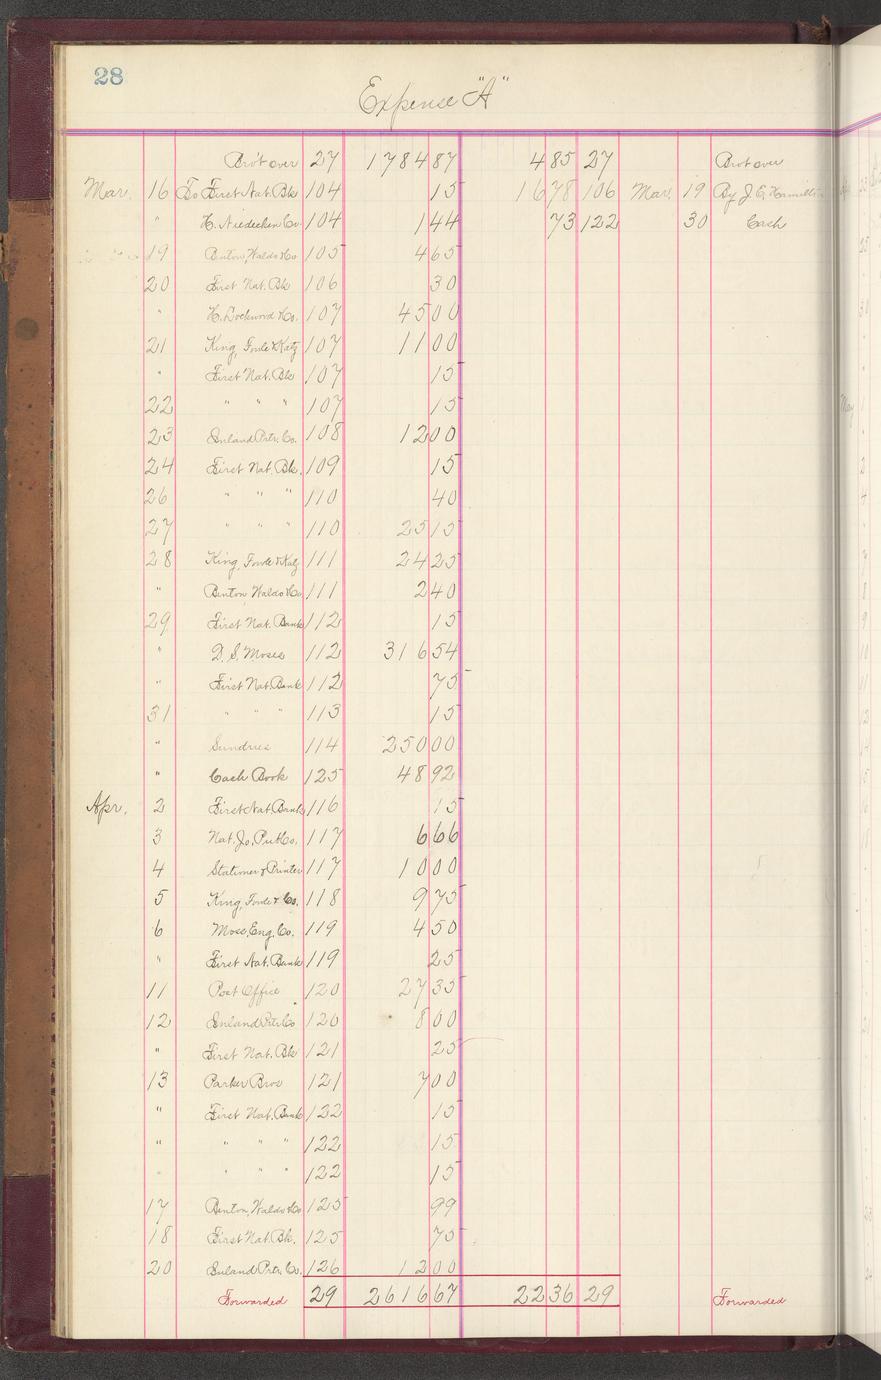 28
Expense "A"
Bro't over 27 1784 87 4 85 27 Brot over
Mar. 16 To First Nat. Bk 104 15 16 78 106 Mar. 19 By J. E. Hamilton
" H. Niedecken Co 104 1 44 73 122 30 Cash
19 Benton, Waldo & Co 105 4 65
20 First Nat. Bk 106 30
" H. Lockwood & Co. 107 45 00
21 King, Fowle & Katz 107 11 00
" First Nat. Bk 107 15
22 " " " 107 15
23 Inland Prtr. Co. 108 12 00
24 First Nat. Bk. 109 15
26 " " " 110 40
27 " " " 110 25 15
28 King, Fowle & Katz 111 24 25
" Benton Waldo & Co 111 2 40
29 First Nat. Bank 112 15
" D. S. Moses 112 316 54
" First Nat. Bank 112 75
31 " " " 113 15
" Sundries 114 250 00
" Cash Book 125 48 92
Apr. 2 First Nat Bank 116 15
3 Nat. Jo. Pub Co. 117 6 66
4 Stationer & Printer 117 10 00
5 King, Fowle & Co. 118 9 75
6 Moss, Eng. Co. 119 4 50
" First Nat. Bank 119 25
11 Post Office 120 27 35
12 Inland Prtr Co 120 8 00
" First Nat. Bk 121 25
13 Parker Bros 121 7 00
" First Nat. Bank 122 15
" " " " 122 15
" " " " 122 15
17 Benton, Waldo & Co 125 99
18 First Nat. Bk. 125 75
20 Inland Prtr. Co. 126 12 00
Forwarded 29 2616 67 22 36 29 Forwarded